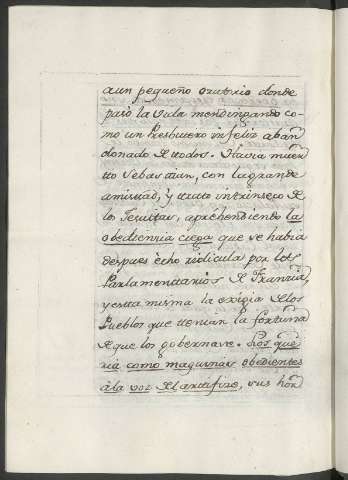 aun pequeño oratorio donde
pasó la vida mendingando co-
mo un Presbitero infeliz aban
donado de todos. Havia muer
to Sebastian, con la grande
amistad, y trato intrinseco de
los Jesuitas, aprehendiendo la
obediencia ciega que se habia
despues echo ridicula por los
Parlamentarios de Francia,
y esta misma la exigia de los
Pueblos que tenian la fortuna
de que los gobernase. Los que
ria como maquinas obedientes
à la voz del artifize, sus hon